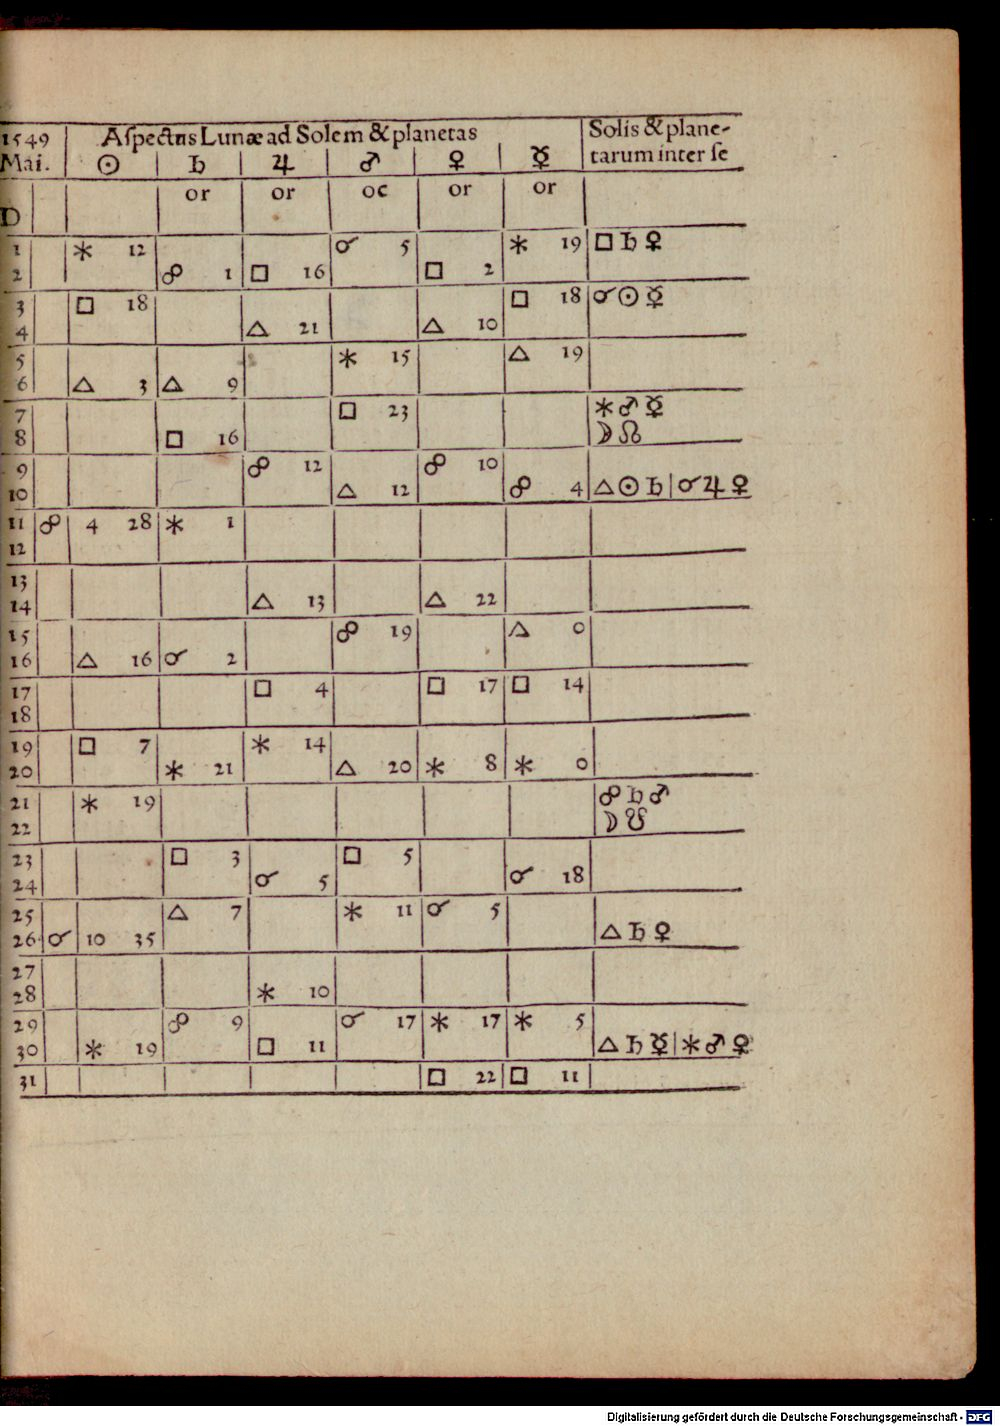 1549 Aſpectus Lunæ ad Solem & planetas Solis & plane-
Mai. ☉ ♄ ♃ ♂ ♀ ☿ tarum inter ſe
or or oc or or
D
1 ⚹ 12 ☌ 5 ⚹ 19 □ ♄ ♀
2 ☍ 1 □ 16 □ 2
3 □ 18 □ 18 ☌ ☉ ☿
4 △ 21 △ 10
5 ⚹ 15 △ 19
6 △ 3 △ 9
7 □ 23 ⚹ ♂ ☿
8 □ 16 ☽ ☊
9 ☍ 12 ☍ 10
10 △ 12 ☍ 4 △ ☉ ♄ | ☌ ♃ ♀
11 ☍ 4 28 ⚹ 1
12
13
14 △ 13 △ 22
15 ☍ 19 △ 0
16 △ 16 ☌ 2
17 □ 4 □ 17 □ 14
18
19 □ 7 ⚹ 14
20 ⚹ 21 △ 20 ⚹ 8 ⚹ 0
21 ⚹ 19 ☍ ♄ ♂
22 ☽ ☋
23 □ 3 □ 5
24 ☌ 5 ☌ 18
25 △ 7 ⚹ 11 ☌ 5
26 ☌ 10 35 △ ♄ ♀
27
28 ⚹ 10
29 ☍ 9 ☌ 17 ⚹ 17 ⚹ 5
30 ⚹ 19 □ 11 △ ♄ ☿ | ⚹ ♂ ♀
31 □ 22 □ 11
Digitalisierung gefördert durch die Deutsche Forschungsgemeinschaft - DFG